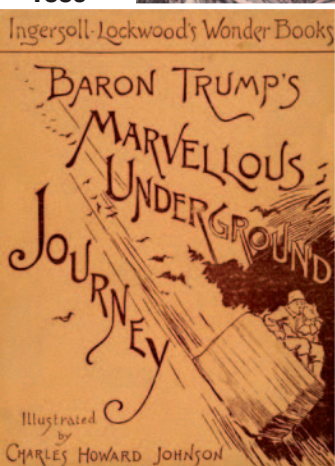 Ingersoll-Lockwood's Wonder Books
BARON TRUMP'S
MARVELLOUS
UNDERGROUND
JOURNEY
Illustrated
by
CHARLES HOWARD JOHNSON